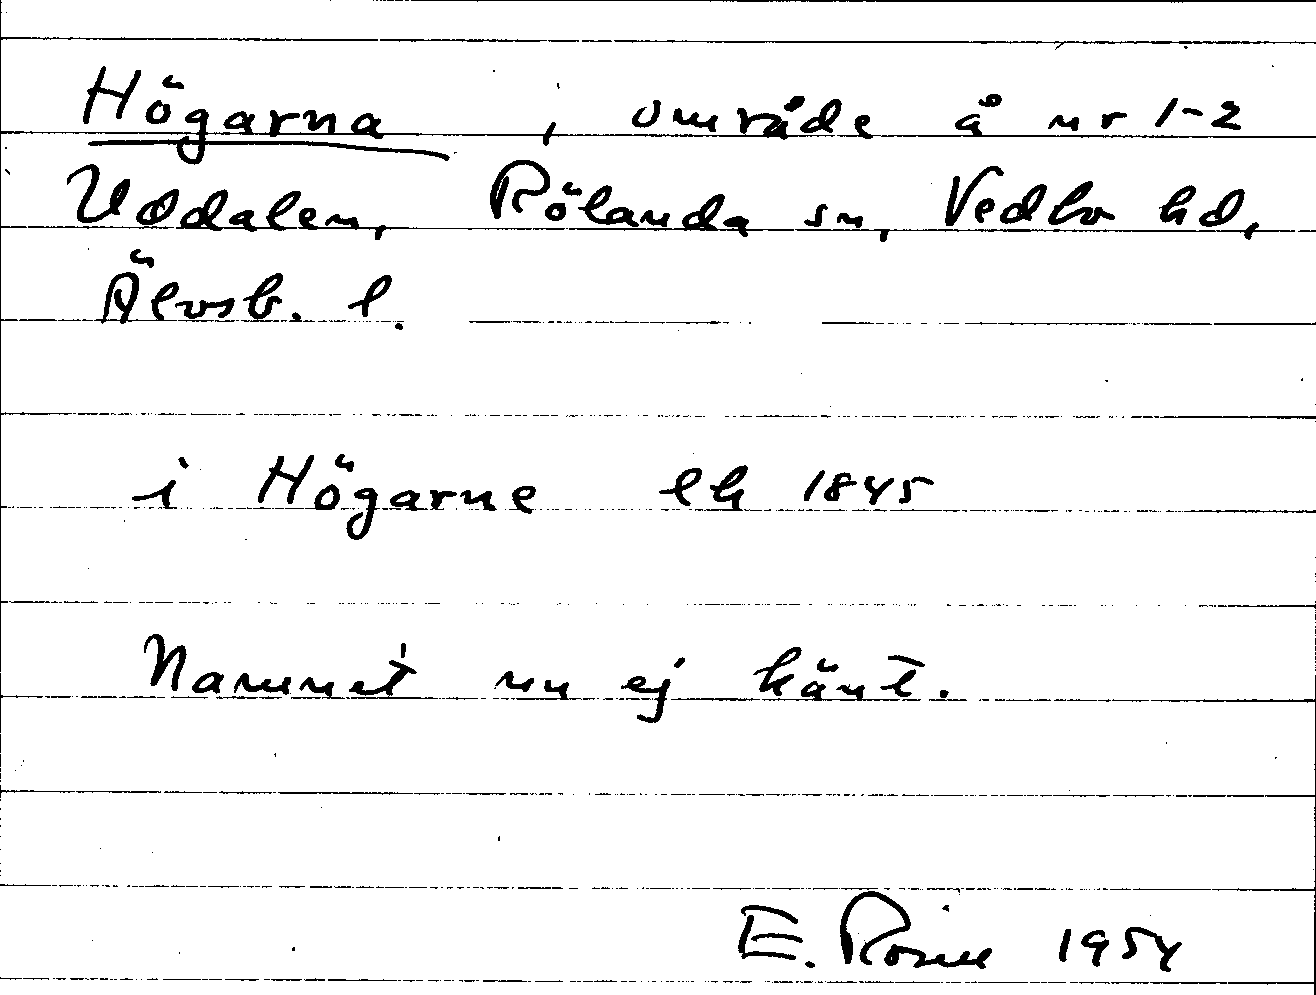 Högarna, område å nr 1-2
Uddalen, Rölanda sn, Vedbo hd,
Älvsb. l.
i Högarne lh 1845
Namnet nu ej känt.
E. Rosin 1954